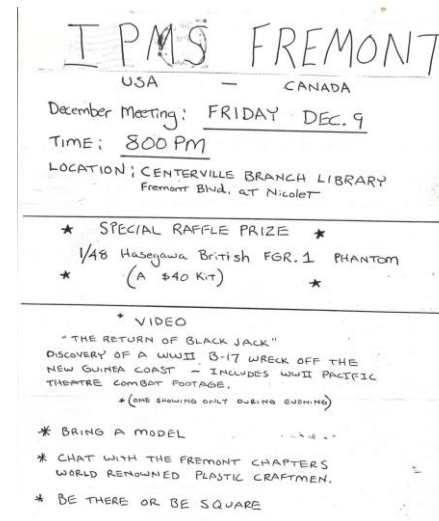 IPMS FREMONT
USA — CANADA
December Meeting: FRIDAY DEC. 9
TIME: 800 PM
LOCATION: CENTERVILLE BRANCH LIBRARY
Fremont Blvd. at Nicolet
* SPECIAL RAFFLE PRIZE *
1/48 Hasegawa British FGR.1 PHANTOM
* (A $40 KIT) *
* VIDEO
"THE RETURN OF BLACK JACK"
DISCOVERY OF A WWII B-17 WRECK OFF THE
NEW GUINEA COAST — INCLUDES WWII PACIFIC
THEATRE COMBAT FOOTAGE.
*(ONE SHOWING ONLY DURING EVENING)
* BRING A MODEL
* CHAT WITH THE FREMONT CHAPTERS
WORLD RENOWNED PLASTIC CRAFTMEN.
* BE THERE OR BE SQUARE